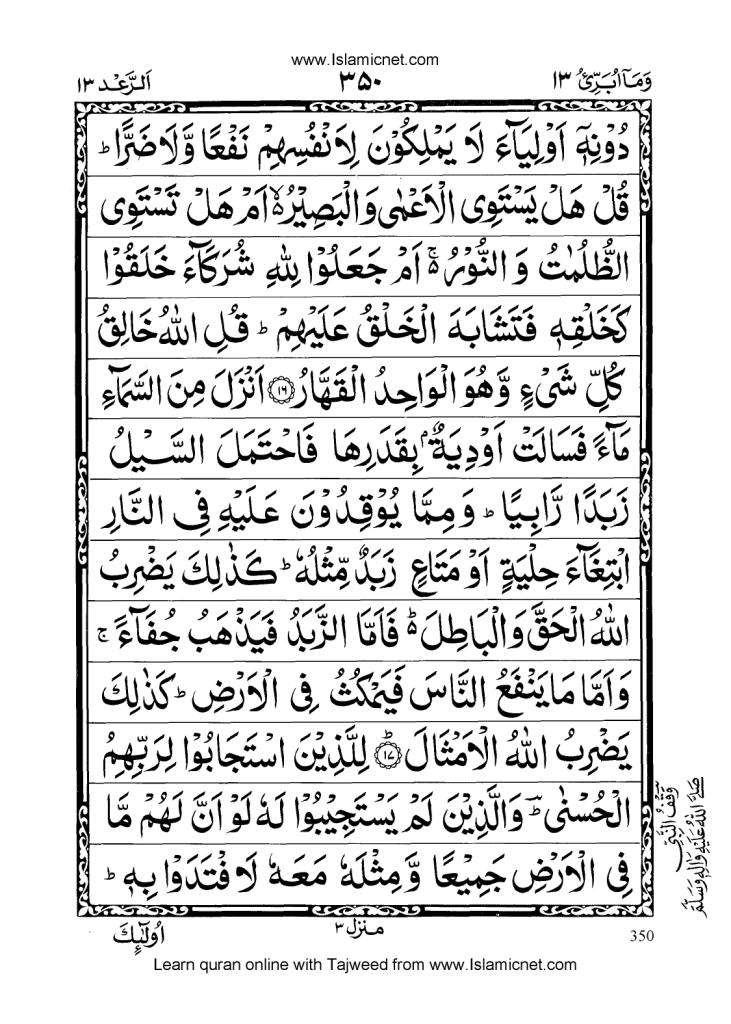 www.Islamicnet.com
وَمَآ اُبَرِّئُ ١٣
٣٥٠
اَلرَّعْد ١٣
دُوْنِهٖٓ اَوْلِيَآءَ لَا يَمْلِكُوْنَ لِاَنْفُسِهِمْ نَفْعًا وَّلَا ضَرًّا ؕ
قُلْ هَلْ يَسْتَوِى الْاَعْمٰى وَالْبَصِيْرُ ۙ۬ اَمْ هَلْ تَسْتَوِى
الظُّلُمٰتُ وَ النُّوْرُ ۚ۬ اَمْ جَعَلُوْا لِلّٰهِ شُرَكَآءَ خَلَقُوْا
كَخَلْقِهٖ فَتَشَابَهَ الْخَلْقُ عَلَيْهِمْ ؕ قُلِ اللّٰهُ خَالِقُ
كُلِّ شَىْءٍ وَّهُوَ الْوَاحِدُ الْقَهَّارُ ﴿۱۶﴾ اَنْزَلَ مِنَ السَّمَآءِ
مَآءً فَسَالَتْ اَوْدِيَةٌۢ بِقَدَرِهَا فَاحْتَمَلَ السَّيْلُ
زَبَدًا رَّابِيًا ؕ وَمِمَّا يُوْقِدُوْنَ عَلَيْهِ فِى النَّارِ
ابْتِغَآءَ حِلْيَةٍ اَوْ مَتَاعٍ زَبَدٌ مِّثْلُهٗ ؕ كَذٰلِكَ يَضْرِبُ
اللّٰهُ الْحَقَّ وَالْبَاطِلَ ؕ۬ فَاَمَّا الزَّبَدُ فَيَذْهَبُ جُفَآءً ۚ
وَاَمَّا مَا يَنْفَعُ النَّاسَ فَيَمْكُثُ فِى الْاَرْضِ ؕ كَذٰلِكَ
يَضْرِبُ اللّٰهُ الْاَمْثَالَ ؕ﴿۱۷﴾ لِلَّذِيْنَ اسْتَجَابُوْا لِرَبِّهِمُ
الْحُسْنٰى ؔؕ وَالَّذِيْنَ لَمْ يَسْتَجِيْبُوْا لَهٗ لَوْ اَنَّ لَهُمْ مَّا
فِى الْاَرْضِ جَمِيْعًا وَّمِثْلَهٗ مَعَهٗ لَافْتَدَوْا بِهٖ ؕ
وقف النبي
صلى الله عليه واله وسلم
اُولٰٓئِكَ
منزل ٣
350
Learn quran online with Tajweed from www.Islamicnet.com